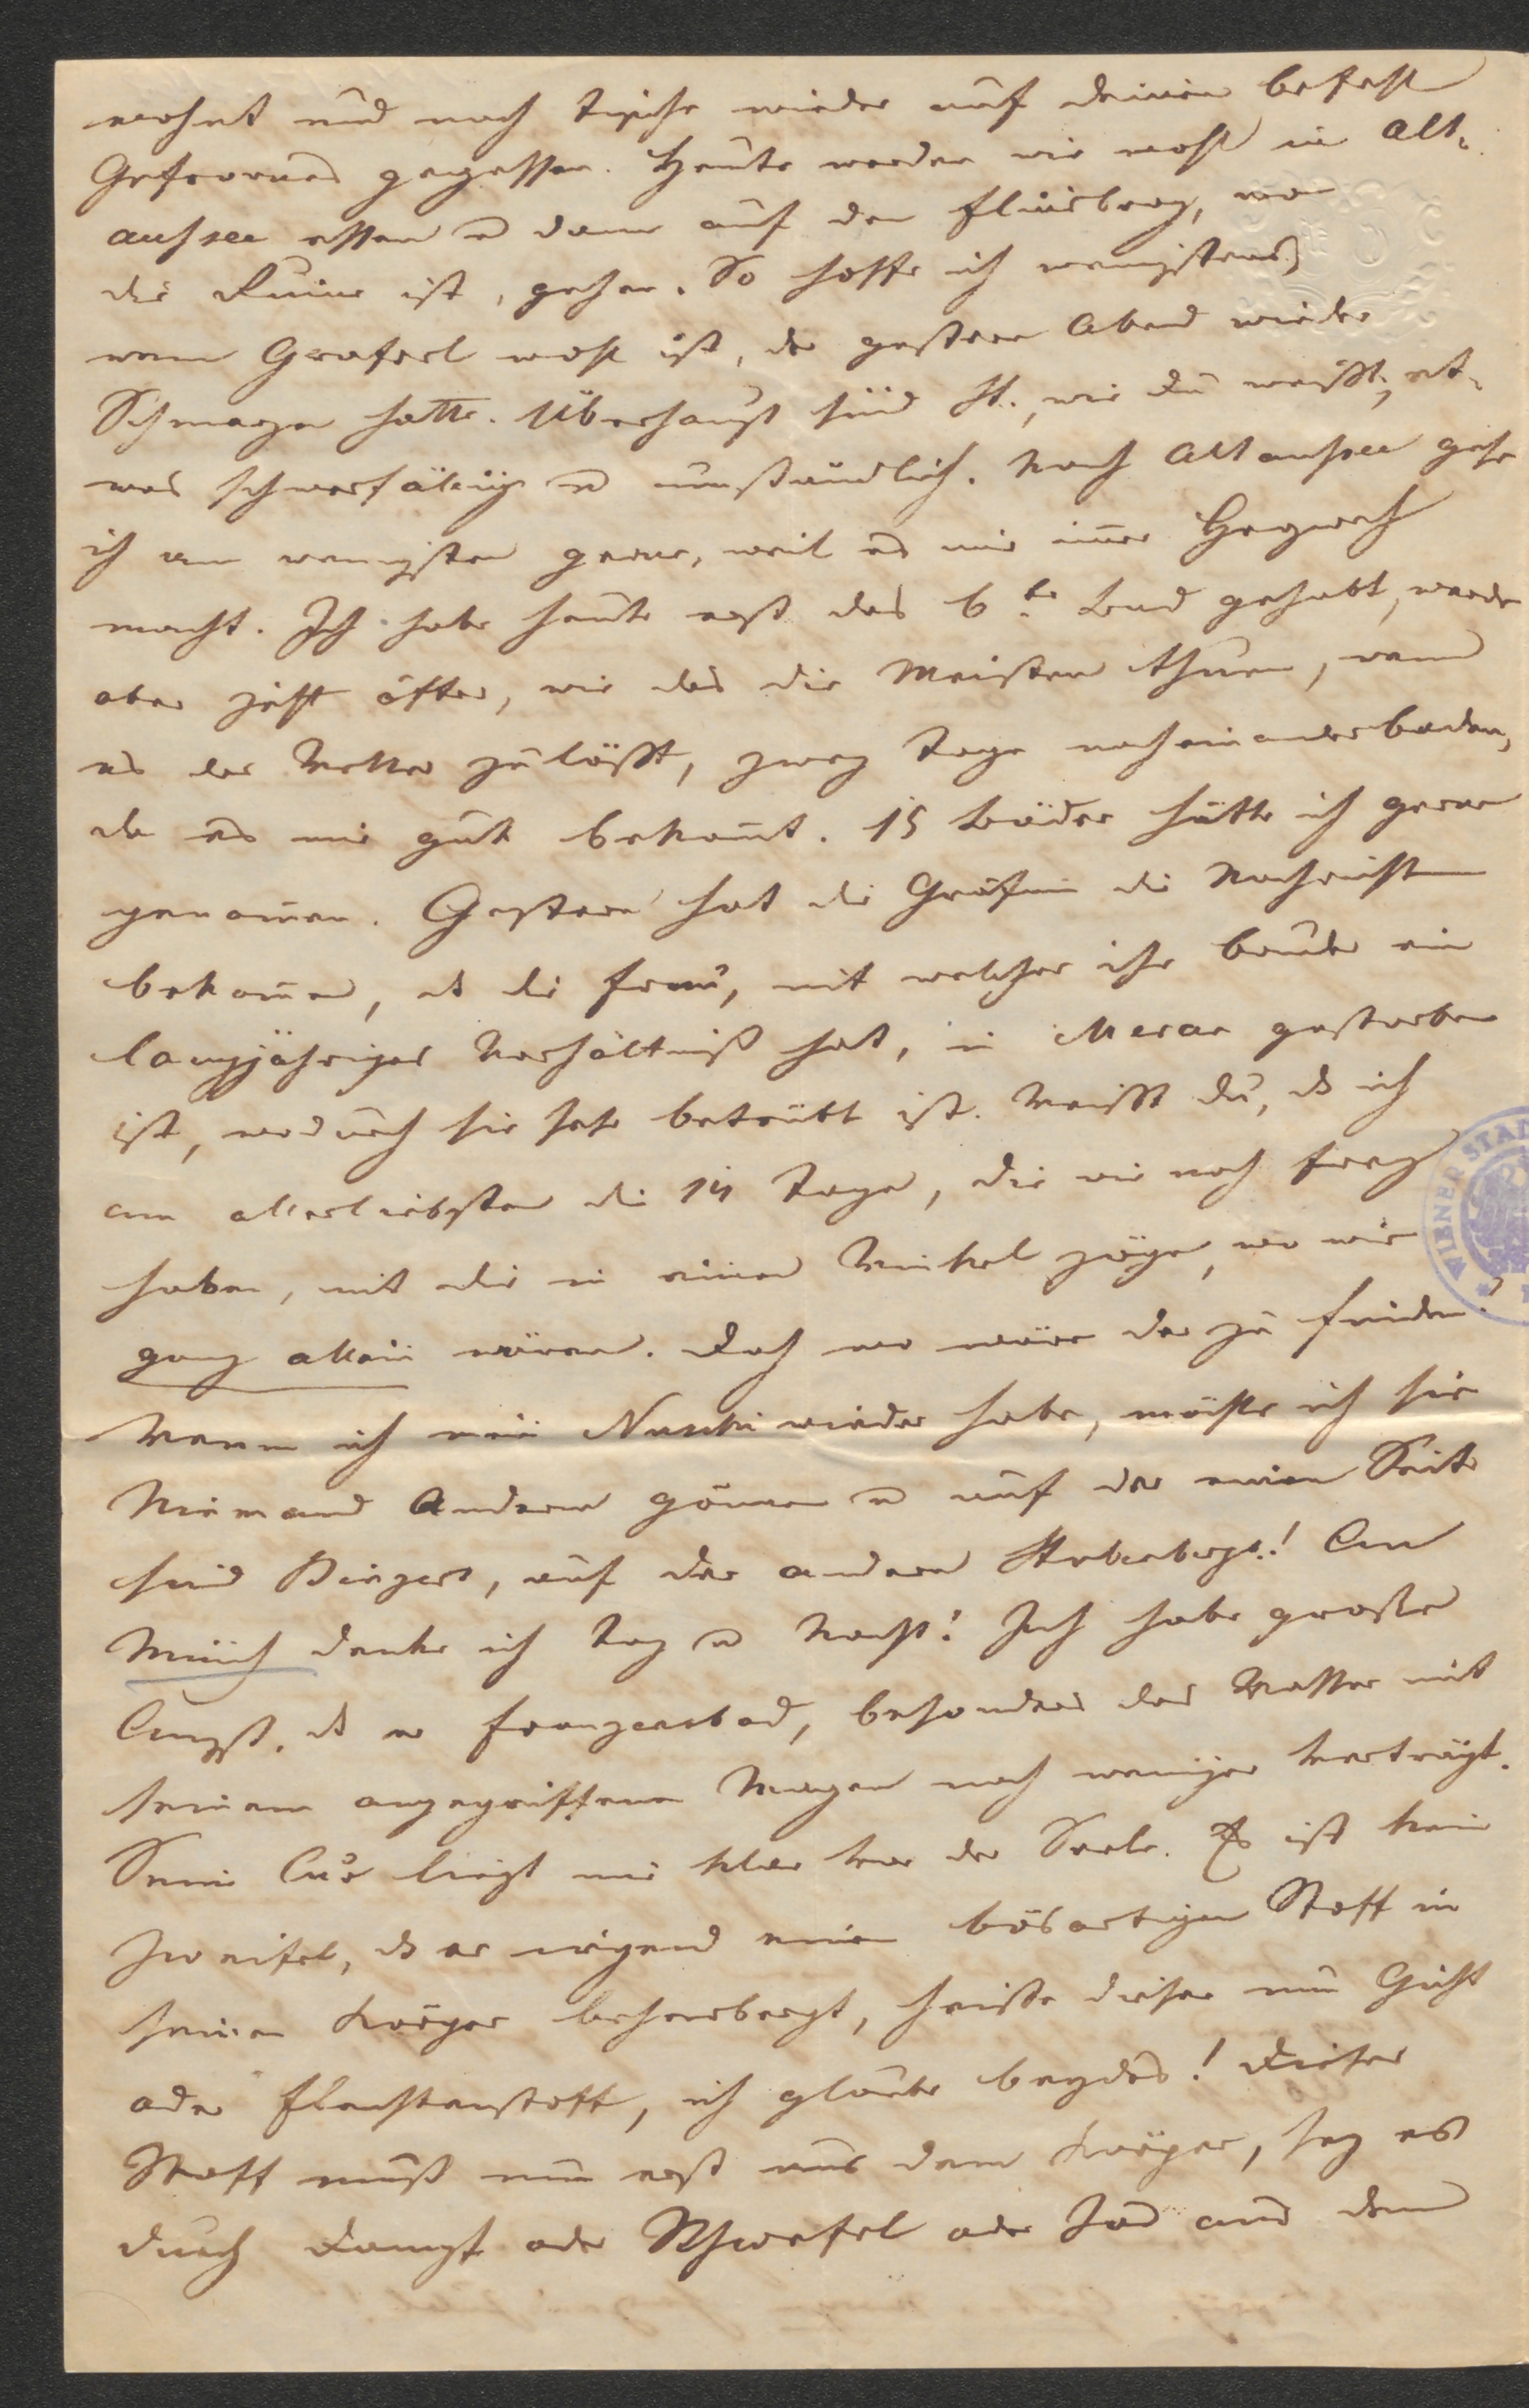 wohnt und nach Tische wieder auf deinen Befehl
Gefrornes gegessen. Heute werden wir wohl in Alt¬
aussee essen u dann auf den Flüsberg, wo
die Ruine ist, gehen. So hoffe ich wenigstens,
wenn Graferl wohl ist, der gestern Abend wieder
Schmerzen hatte. Überhaupt sind St., wie du weißt, et¬
was schwerfällig u umständlich. Nach Altaussee gehe
ich am wenigsten gerne, weil es mir im̅er Herzweh
macht. Ich habe heute erst das 6te Bad gehabt, werde
aber jetzt öfter, wie das die Meisten thuen, wenn
es das Wetter zuläßt, zwey Tage nacheinander baden,
da es mir gut beko̅mt. 15 Bäder hätte ich gerne
geno̅men. Gestern hat die Gräfin die Nachricht
beko̅men, dß die Frau, mit welcher ihr Bruder ein
langjähriges Verhältniß hat, in Meran gestorben
ist, wodurch sie sehr betrübt ist. Weißt du, dß ich
am allerliebsten die 14 Tage, die wir noch frey
haben, mit dir in einen Winkel zöge, wo wir
ganz allein wären. Doch wo wäre der zu finden?
Wenn ich mein Nuschi wieder habe, möchte ich sie
Niemand Andern gönnen u auf der einen Seite
sind Bingers, auf der andern Stubenbergs! An
Minch denke ich Tag u Nacht! Ich habe große
Angst, dß er Franzensbad, besonders das Wasser mit
seinem angegriffenen Magen noch weniger verträgt.
Seine Cur liegt mir klar vor der Seele. Es ist kein
Zweifel, dß er irgend einen bösartigen Stoff in
seinem Körper beherbergt, heiße dieser nun Gicht
oder Flechtenstoff, ich glaube beydes! Dieser
Stoff muß nun erst aus dem Körper, sey es
durch Dampf oder Schwefel oder Jod aus dem
WIENER STAD